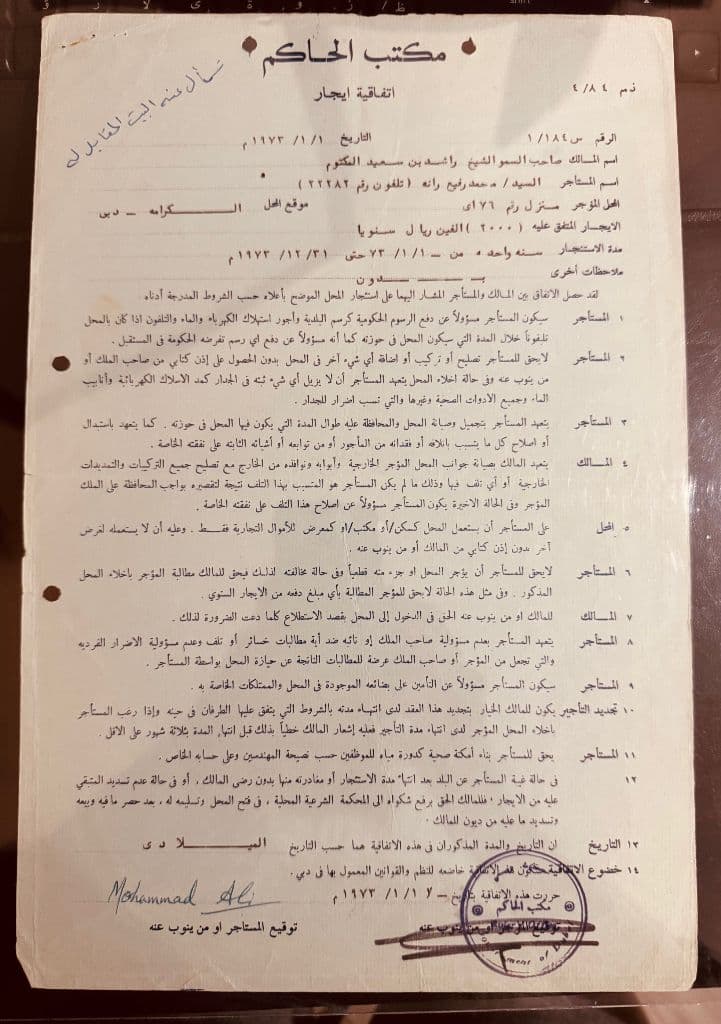 مكتب الحاكم
ذم ٤/٨٤
اتفاقية ايجار
نسأل عنه البيت المقابل له
الرقم س ١/١٨٤ التاريخ ١٩٧٣/١/١م
اسم المالك صاحب السمو الشيخ راشد بن سعيد المكتوم
اسم المستأجر السيد/ محمد رفيع رانه (تلفون رقم ٢٢٢٨٢)
المحل المؤجر منزل رقم ٧٦ اى موقع المحل الكرامه - دبى
الايجار المتفق عليه (٢٠٠٠) الفين ريال سنويا
مدة الاستئجار سنه واحده من - ٧٣/١/١ حتى ١٩٧٣/١٢/٣١م
ملاحظات أخرى بدون
لقد حصل الاتفاق بين المالك والمستأجر المشار اليهما على استئجار المحل الموضح بأعلاه حسب الشروط المدرجة أدناه
١ المستأجر سيكون المستأجر مسؤولاً عن دفع الرسوم الحكومية كرسم البلدية وأجور استهلاك الكهرباء والماء والتلفون اذا كان بالمحل
تلفوناً خلال المدة التي يكون المحل في حوزته كما أنه مسؤولاً عن دفع اي رسم تفرضه الحكومة في المستقبل .
٢ المستأجر لايحق للمستأجر تصليح أو تركيب أو اضافة أي شيء آخر في المحل بدون الحصول على إذن كتابي من صاحب الملك أو
من ينوب عنه وفى حالة اخلاء المحل يتعهد المستأجر أن لا يزيل أي شيء ثبته في الجدار كمد الاسلاك الكهربائية وأنابيب
الماء وجميع الادوات الصحية وغيرها والتي تسب اضرار للجدار .
٣ المستأجر يتعهد المستأجر بتجميل وصيانة المحل والمحافظة عليه طوال المدة التي يكون فيها المحل فى حوزته . كما يتعهد باستبدال
أو اصلاح كل ما يتسبب باتلافه أو فقدانه من المأجور أو من توابعه أو أشيائه الثابته على نفقته الخاصة .
٤ المالك يتعهد المالك بصيانة جوانب المحل المؤجر الخارجية وأبوابه ونوافذه من الخارج مع تصليح جميع التركيبات والتمديدات
الخارجية أو أي تلف فيها وذلك ما لم يكن المستأجر هو المتسبب بهذا التلف نتيجة لتقصيره بواجب المحافظة على الملك
المؤجر وفى الحالة الاخيرة يكون المستأجر مسؤولاً عن اصلاح هذا التلف على نفقته الخاصة .
٥ المحل على المستأجر أن يستعمل المحل كسكن/أو مكتب/او كمعرض للأموال التجارية فقط . وعليه أن لا يستعمله لغرض
آخر بدون إذن كتابي من المالك أو من ينوب عنه .
٦ المستأجر لايحق للمستأجر أن يؤجر المحل او جزء منه قطعياً وفى حالة مخالفته لذلك فيحق للمالك مطالبة المؤجر باخلاء المحل
المذكور . وفى مثل هذه الحالة لايحق للمؤجر المطالبة بأي مبلغ دفعه من الايجار السنوي .
٧ المالك للمالك او من ينوب عنه الحق في الدخول إلى المحل بقصد الاستطلاع كلما دعت الضرورة لذلك .
٨ المستأجر يتعهد المستأجر بعدم مسؤولية صاحب الملك إو نائبه ضد أية مطالبات خسائر أو تلف وعدم مسؤولية الاضرار الفرديه
والتي تجعل من المؤجر أو صاحب الملك عرضة للمطالبات الناتجة عن حيازة المحل بواسطة المستأجر .
٩ المستأجر سيكون المستأجر مسؤولاً عن التأمين على بضائعه الموجودة في المحل والممتلكات الخاصة به .
١٠ تجديد التأجير يكون للمالك الخيار بتجديد هذا العقد لدى انتهاء مدته بالشروط التي يتفق عليها الطرفان في حينه وإذا رغب المستأجر
باخلاء المحل المؤجر لدى انتهاء مدة التأجير فعليه إشعار المالك خطياً بذلك قبل انتهاء المدة بثلاثة شهور على الاقل .
١١ المستأجر يحق للمستأجر بناء أمكنة صحية كدورة مياه للموظفين حسب نصيحة المهندسين وعلى حسابه الخاص .
١٢ فى حالة غيبة المستأجر عن البلد بعد انتهاء مدة الاستئجار أو مغادرته منها بدون رضى المالك ، أو فى حالة عدم تسديد المتبقي
عليه من الايجار ؛ فللمالك الحق برفع شكواه الى المحكمة الشرعية المحلية ، فى فتح المحل وتسليمه له ، بعد حصر ما فيه وبيعه
وتسديد ما عليه من ديون للمالك .
١٣ التاريخ ان التاريخ والمدة المذكوران في هذه الاتفاقية هما حسب التاريخ الميلادى
١٤ خضوع الاتفاقية ستكون هذه الاتفاقية خاضعه للنظم والقوانين المعمول بها فى دبي .
حررت هذه الاتفاقية بتاريخ - ١٩٧٣/١/١م
Mohammad Ali
مكتب الحاكم
توقيع المؤجر او من ينوب عنه توقيع المستاجر او من ينوب عنه